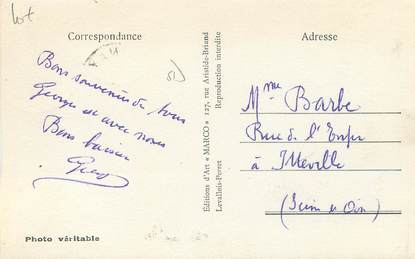 Lot
Correspondance
Bons souvenirs de tous
Georges est avec nous
Bons baisers
Éditions d'Art « MARCO » 127, rue Aristide-Briand
Levallois-Perret
Reproduction interdite
Adresse
Mme Barbe
Rue de l'Enfer
à Itteville
(Seine et Oise)
Photo véritable